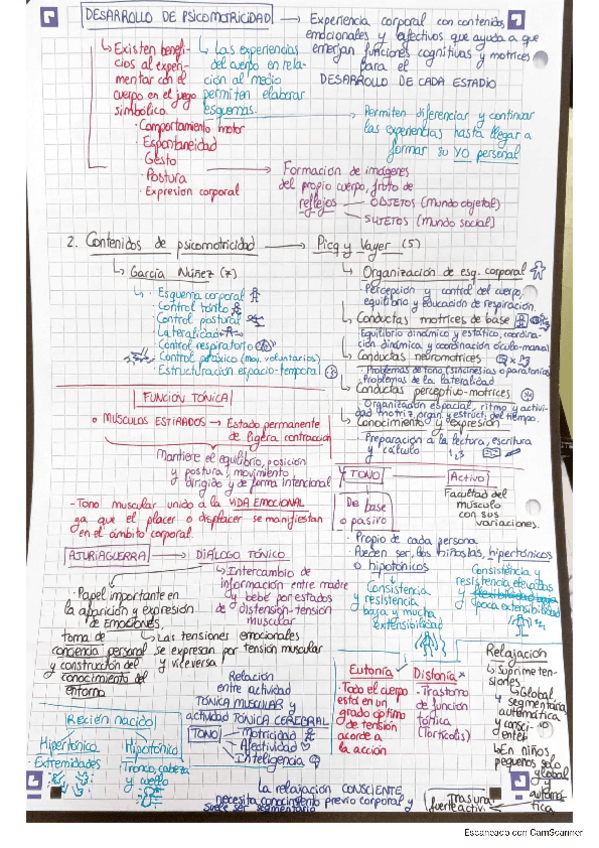 DESARROLLO DE PSICOMOTRICIDAD → Experiencia corporal con contenidos
emocionales y afectivos que ayuda a que
emerjan funciones cognitivas y motrices
para el
DESARROLLO DE CADA ESTADIO
Existen benefi-
cios al experi-
mentar con el
cuerpo en el juego
simbólico.
Las experiencias
del cuerpo en rela-
ción al medio
permiten elaborar
esquemas.
Permiten diferenciar y continuar
las experiencias hasta llegar a
formar su YO personal
· Comportamiento motor
· Espontaneidad
· Gesto
· Postura
· Expresion corporal
Formación de imágenes
del propio cuerpo, fruto de
reflejos
OBJETOS (mundo objetal)
SUJETOS (mundo social)
2. Contenidos de psicomotricidad → Picq y Vayer (5)
García Núñez (7)
· Esquema corporal
· Control tónico
· Control postural
· Lateralidad
· Control respiratorio
· Control práxico (mov. voluntarios)
· Estructuración espacio-temporal
Organización de esq. corporal
Percepción y control del cuerpo,
equilibrio y educación de respiración.
Conductas motrices de base
Equilibrio dinámico y estático, coordina-
ción dinámica y coordinación óculo-manual
Conductas neuromotrices
· Problemas de tono (sincinesias o paratonías)
· Problemas de la lateralidad
Conductas perceptivo-motrices
Organización espacial, ritmo y activi-
dad motriz, organ. y estruct. del tiempo.
Conocimiento y expresión
· Preparación a la lectura, escritura
y cálculo 1,3
FUNCIÓN TÓNICA
MÚSCULOS ESTIRADOS → Estado permanente
de ligera contracción
Mantiene el equilibrio, posición
y postura, movimiento
dirigido y de forma intencional
- Tono muscular unido a la VIDA EMOCIONAL
ya que el placer o displacer se manifiestan
en el ámbito corporal.
TONO
De base
o pasivo
Activo
Facultad del
músculo
con sus
variaciones.
· Propio de cada persona
· Pueden ser, los niños/as, hipertónicos
o hipotónicos
Consistencia
y resistencia
baja y mucha
extensibilidad
Consistencia y
resistencia elevadas
y
poca extensibilidad
AJURIAGUERRA → DIÁLOGO TÓNICO
· Papel importante en
la aparición y expresión
de emociones,
toma de
conciencia personal
y construcción del
conocimiento del
entorno
Intercambio de
información entre madre
y bebé por estados
de distensión-tensión
muscular
Las tensiones emocionales
se expresan por tensión muscular
y viceversa
Relación
entre actividad
TÓNICA MUSCULAR y
actividad TÓNICA CEREBRAL
TONO
Motricidad
Afectividad
Inteligencia
Recién nacido
Hipertónico
Extremidades
Hipotónico
Tronco, cabeza
y cuello
Eutonía
· Todo el cuerpo
está en un
grado óptimo
de tensión
acorde a
la acción
Distonía
· Trastorno
de función
tónica
(Tortícolis)
Relajación
Suprime ten-
siones
Global,
segmentaria,
automática
y consci-
ente
En niños
pequeños solo
global
y
automá-
tica
La relajación CONSCIENTE
necesita conocimiento previo corporal y
suele ser segmentaria
Tras una
fuerte activ.
Escaneado con CamScanner